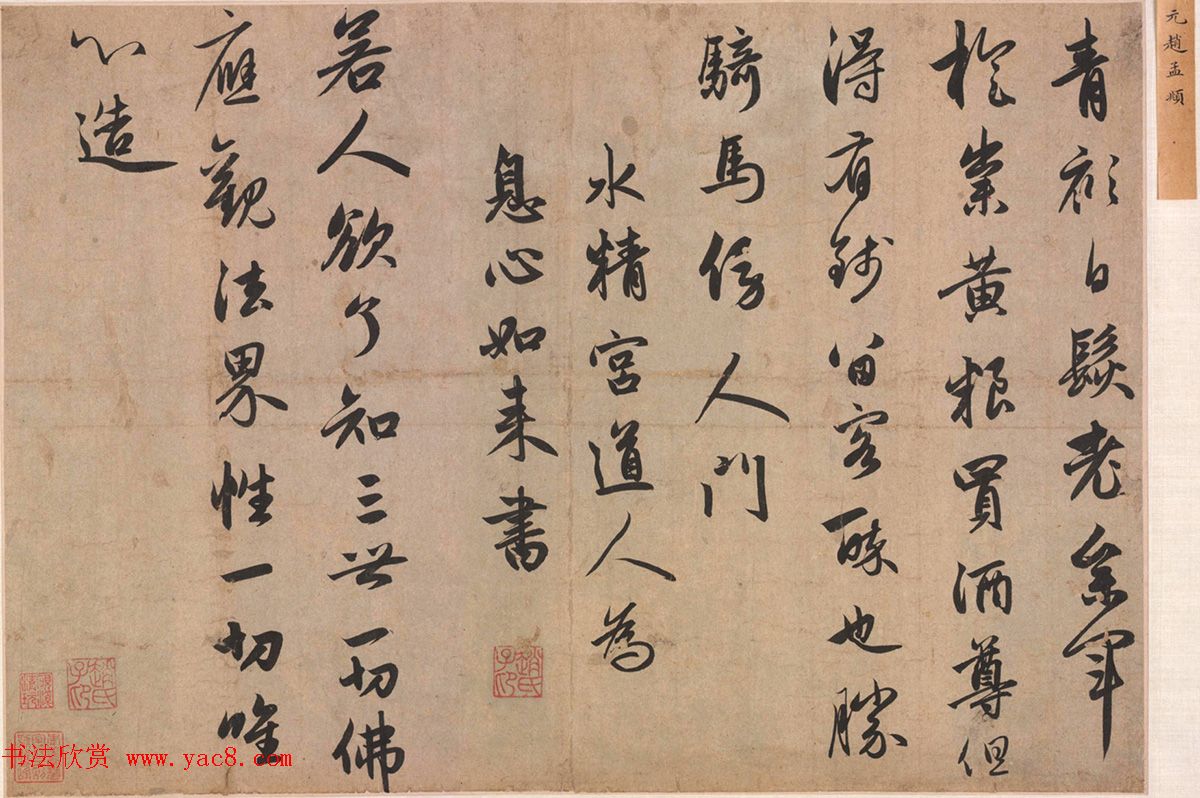 元趙孟頫
青衫白髮老參軍
旋粜黃粮買酒尊但
得有錢留客醉也勝
騎馬傍人門
水精宮道人為
息心如来書
趙氏子昂
若人欲了知三世一切佛
應觀法界性一切唯
心造
趙氏子昂
书法欣赏 www.yac8.com